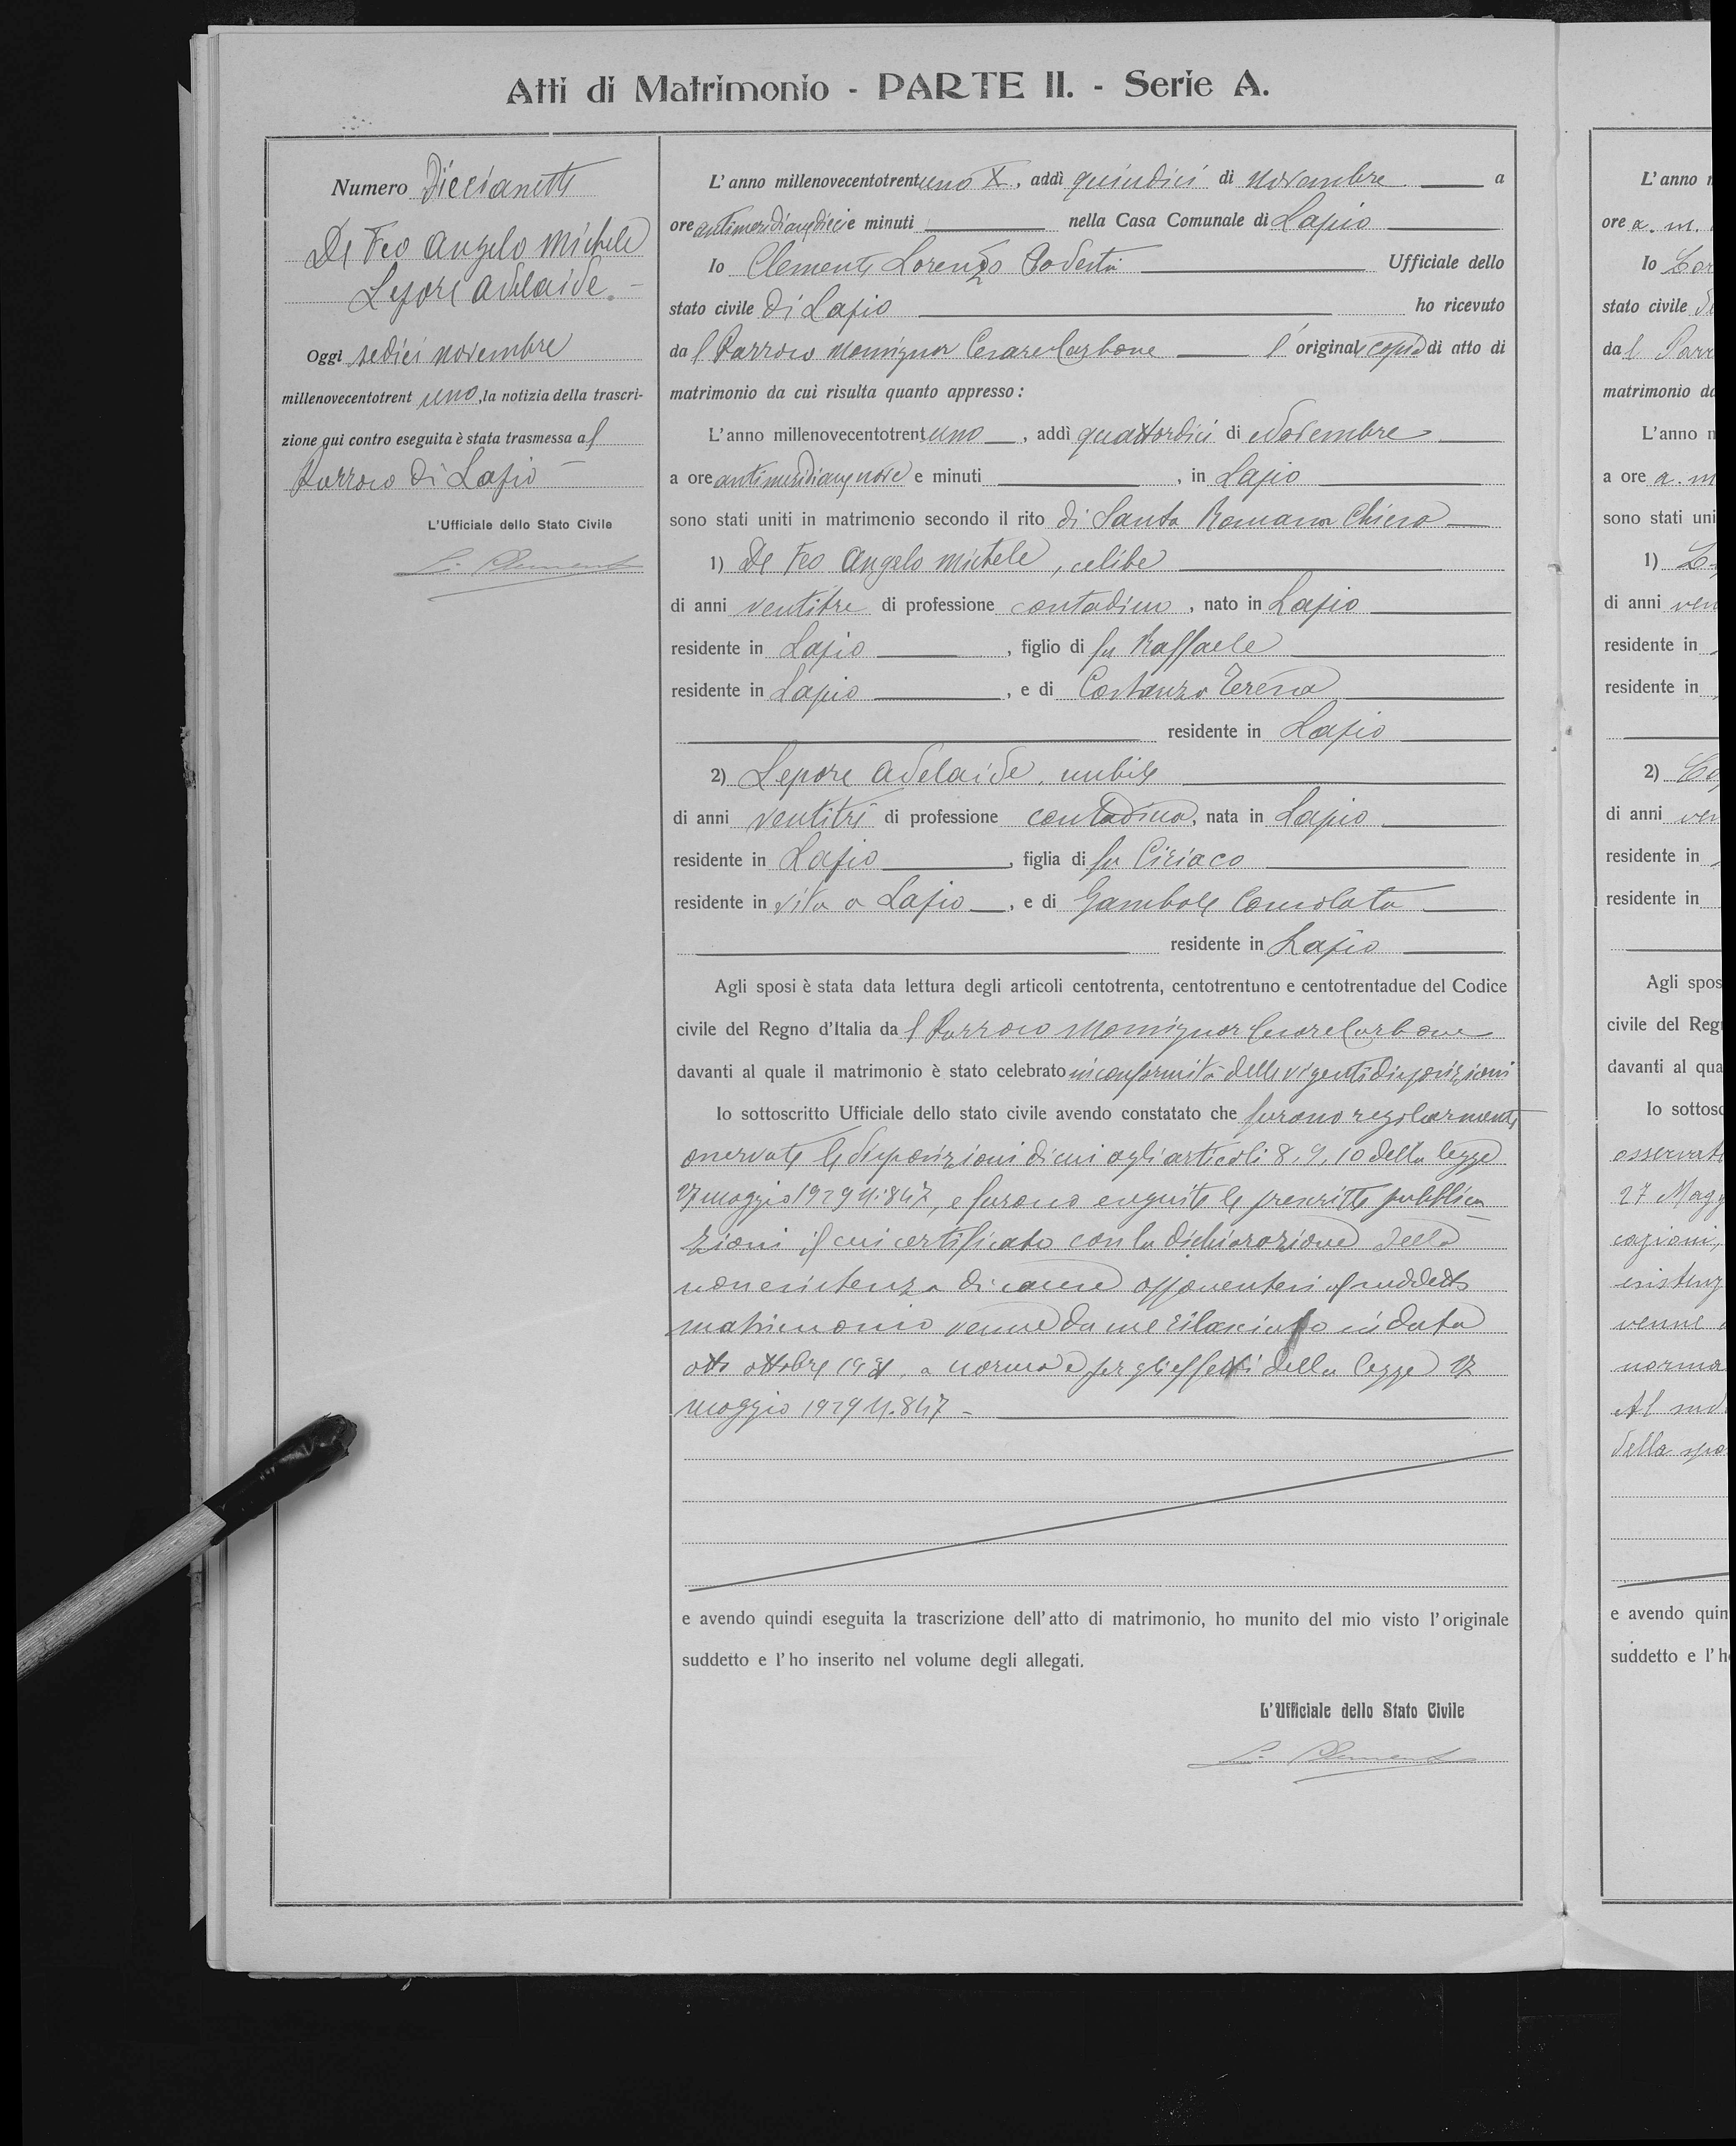 Atti di Matrimonio - PARTE II. - Serie A.
Numero Diecisette
De Feo Angelo Michele
Lepore Adelaide. -
Oggi sedici novembre
millenovecentotrent uno, la notizia della trascri-
zione qui contro eseguita è stata trasmessa al
Parroco di Lapio -
L'Ufficiale dello Stato Civile
L. Clemente
L'anno millenovecentotrentuno X, addì quindici di novembre a
ore antimeridiane dieci e minuti nella Casa Comunale di Lapio
Io Clemente Lorenzo Podestà Ufficiale dello
stato civile di Lapio ho ricevuto
dal Parroco Monsignor Cesare Carbone l'original copia di atto di
matrimonio da cui risulta quanto appresso:
L'anno millenovecentotrentuno, addì quattordici di Novembre
a ore antimeridiane nove e minuti , in Lapio
sono stati uniti in matrimonio secondo il rito di Santa Romana Chiesa
1) De Feo Angelo Michele, celibe
di anni ventitre di professione contadino, nato in Lapio
residente in Lapio , figlio di fu Raffaele
residente in Lapio , e di Costanza Teresa
residente in Lapio
2) Lepore Adelaide, nubile
di anni ventitrè di professione contadina, nata in Lapio
residente in Lapio , figlia di fu Ciriaco
residente in vita a Lapio , e di Gambale Consolata
residente in Lapio
Agli sposi è stata data lettura degli articoli centotrenta, centotrentuno e centotrentadue del Codice
civile del Regno d'Italia dal Parroco Monsignor Cesare Carbone
davanti al quale il matrimonio è stato celebrato in conformità delle vigenti disposizioni
Io sottoscritto Ufficiale dello stato civile avendo constatato che furono regolarmente
osservate le disposizioni di cui agli articoli 8, 9, 10 della legge
27 maggio 1929 N. 847, e furono eseguite le prescritte pubblica
zioni il cui certificato con la dichiarazione della
non esistenza di cause opponentesi al suddetto
matrimonio venne da me rilasciato in data
otto ottobre 1931, a norma e per gli effetti della legge 27
maggio 1929 N. 847 -
e avendo quindi eseguita la trascrizione dell'atto di matrimonio, ho munito del mio visto l'originale
suddetto e l'ho inserito nel volume degli allegati.
L'Ufficiale dello Stato Civile
L. Clemente
L'anno
ore a. m.
Io
stato civile
dal Parr
matrimonio da
L'anno
a ore a. m
sono stati uni
1)
di anni ven
residente in
residente in
2)
di anni ven
residente in
residente in
Agli spos
civile del Reg
davanti al qua
Io sottosc
osservate
27 Magg
cazioni,
esistenz
venne
norma
Al
della spo
e avendo quin
suddetto e l'h